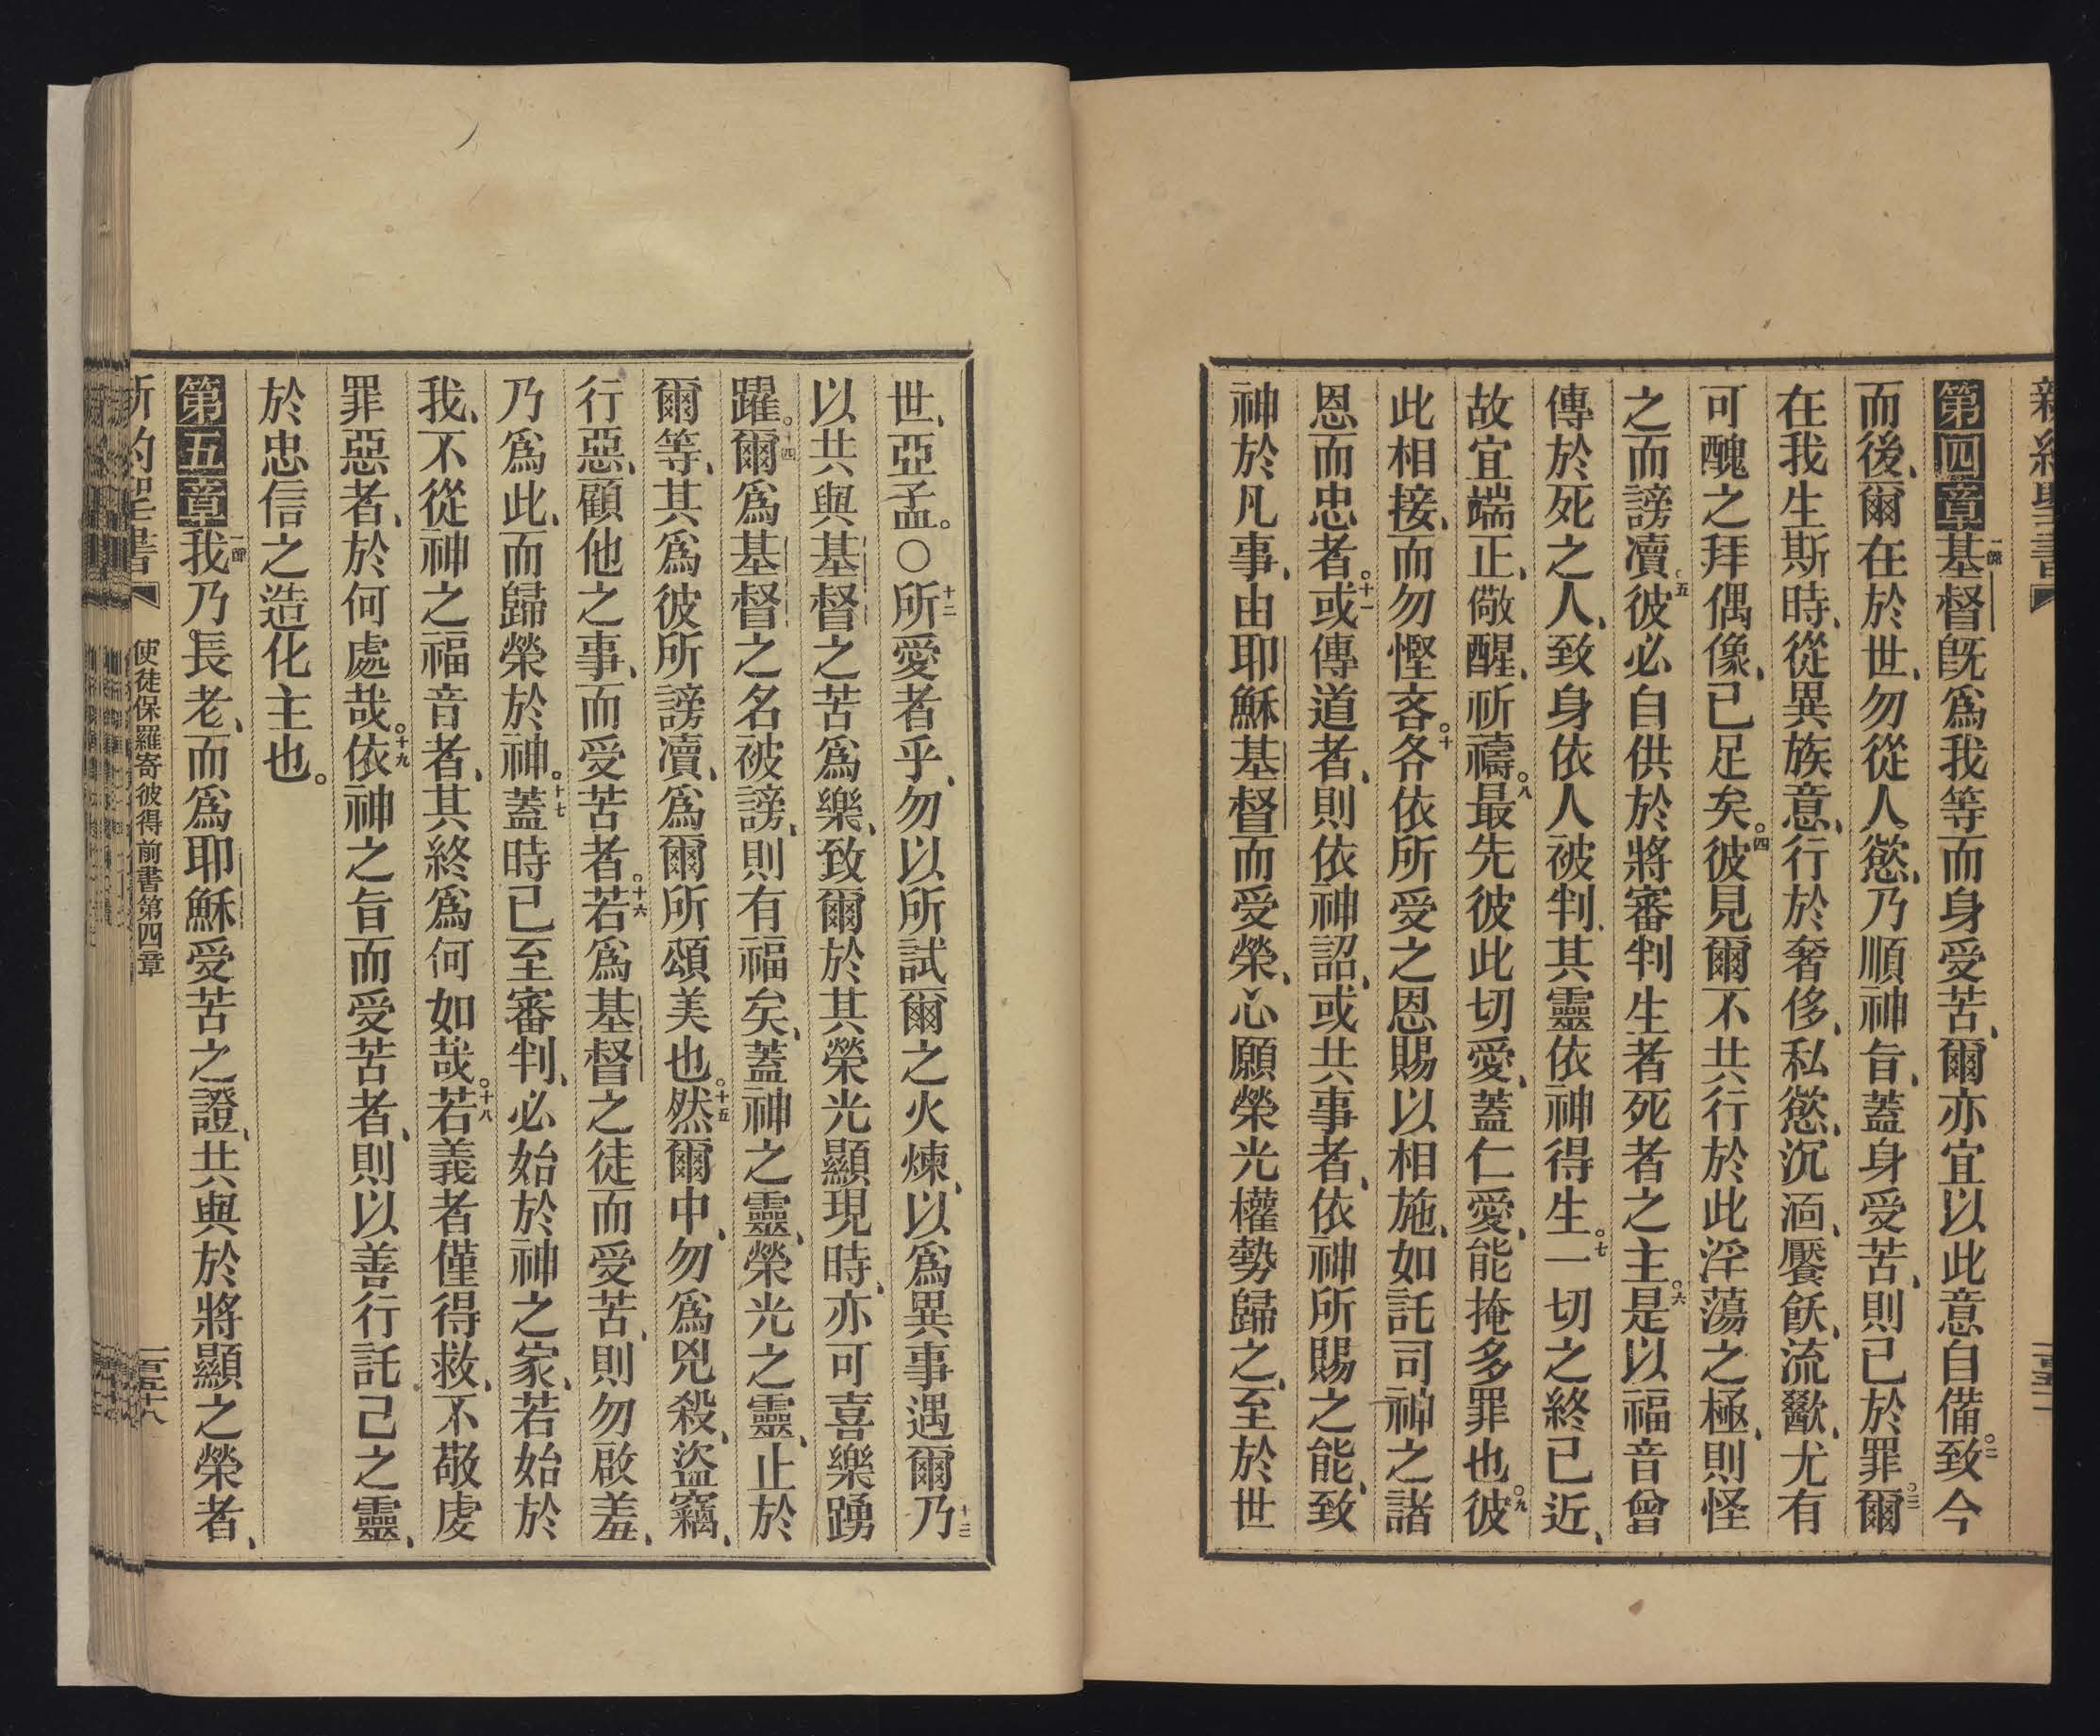 新約聖書
第四章一節基督旣爲我等而身受苦、爾亦宜以此意自備。二致今
而後、爾在於世、勿從人慾、乃順神旨、蓋身受苦、則已於罪。三爾
在我生斯時、從異族意、行於奢侈、私慾、沉湎、饜飫、流歠、尤有
可醜之拜偶像、已足矣。四彼見爾不共行於此淫蕩之極、則怪
之而謗讟。五彼必自供於將審判生者死者之主。六是以福音曾
傳於死之人、致身依人被判、其靈依神得生。七一切之終已近、
故宜端正、儆醒、祈禱。八最先彼此切愛、蓋仁愛、能掩多罪也。九彼
此相接、而勿慳吝。十各依所受之恩賜以相施、如託司神之諸
恩而忠者。十一或傳道者、則依神詔、或共事者、依神所賜之能、致
神於凡事、由耶穌基督而受榮、心願榮光權勢歸之、至於世
世、亞孟。〇十二所愛者乎、勿以所試爾之火煉、以爲異事遇爾十三乃
以共與基督之苦爲樂、致爾於其榮光顯現時、亦可喜樂踴
躍。十四爾爲基督之名被謗、則有福矣、蓋神之靈、榮光之靈、止於
爾等、其爲彼所謗讟、爲爾所頌美也。十五然爾中、勿爲兇殺、盜竊、
行惡、顧他之事、而受苦者。十六若爲基督之徒而受苦、則勿啟羞、
乃爲此、而歸榮於神。十七蓋時已至審判、必始於神之家、若始於
我、不從神之福音者、其終爲何如哉。十八若義者僅得救、不敬虔
罪惡者、於何處哉。十九依神之旨而受苦者、則以善行託己之靈、
於忠信之造化主也。
第五章一節我乃長老、而爲耶穌受苦之證、共與於將顯之榮者、
新約聖書 使徒保羅寄彼得前書第四章